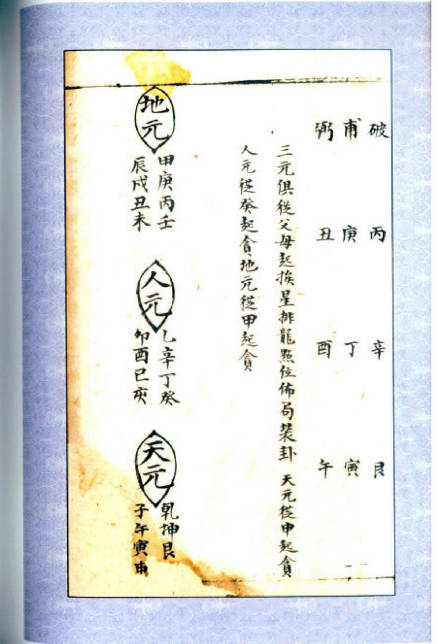 破 丙 辛 艮
甫 庚 丁 寅
弼 丑 酉 午
三元俱從父母起挨星排龍點位佈局裝卦 天元從申起貪
人元從癸起貪地元從甲起貪
地元
甲庚丙壬
辰戌丑未
人元
乙辛丁癸
卯酉巳亥
天元
乾坤艮
子午寅申